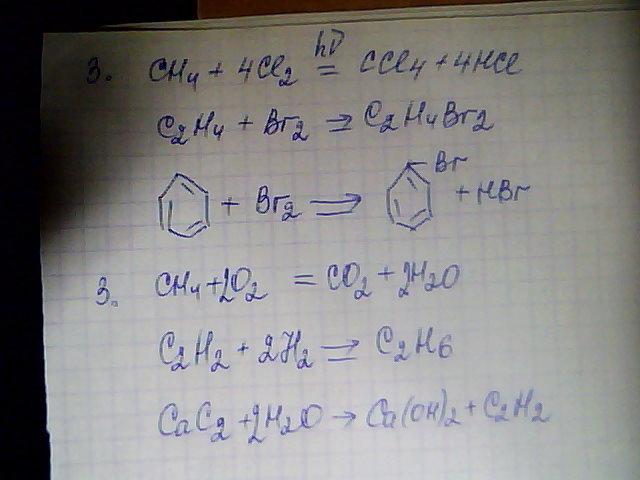 3. CH4 + 4Cl2 =hν CCl4 + 4HCl
C2H4 + Br2 ⇒ C2H4Br2
+ Br2 ⇒ Br + HBr
3. CH4 + 2O2 = CO2 + 2H2O
C2H2 + 2H2 ⇒ C2H6
CaC2 + 2H2O → Ca(OH)2 + C2H2